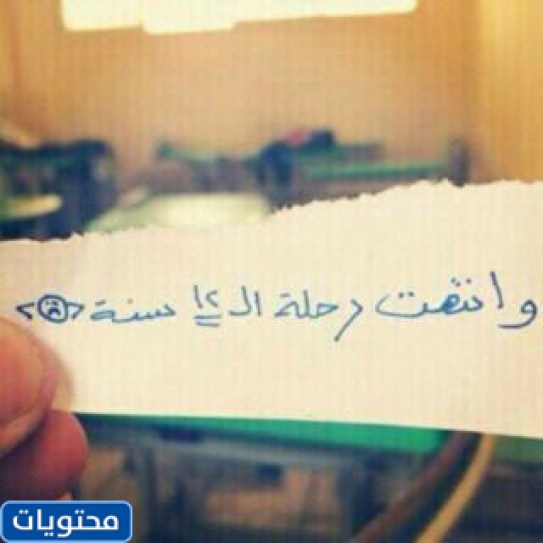 وانتهت رحلة الـ ١٢ سنة
محتويات